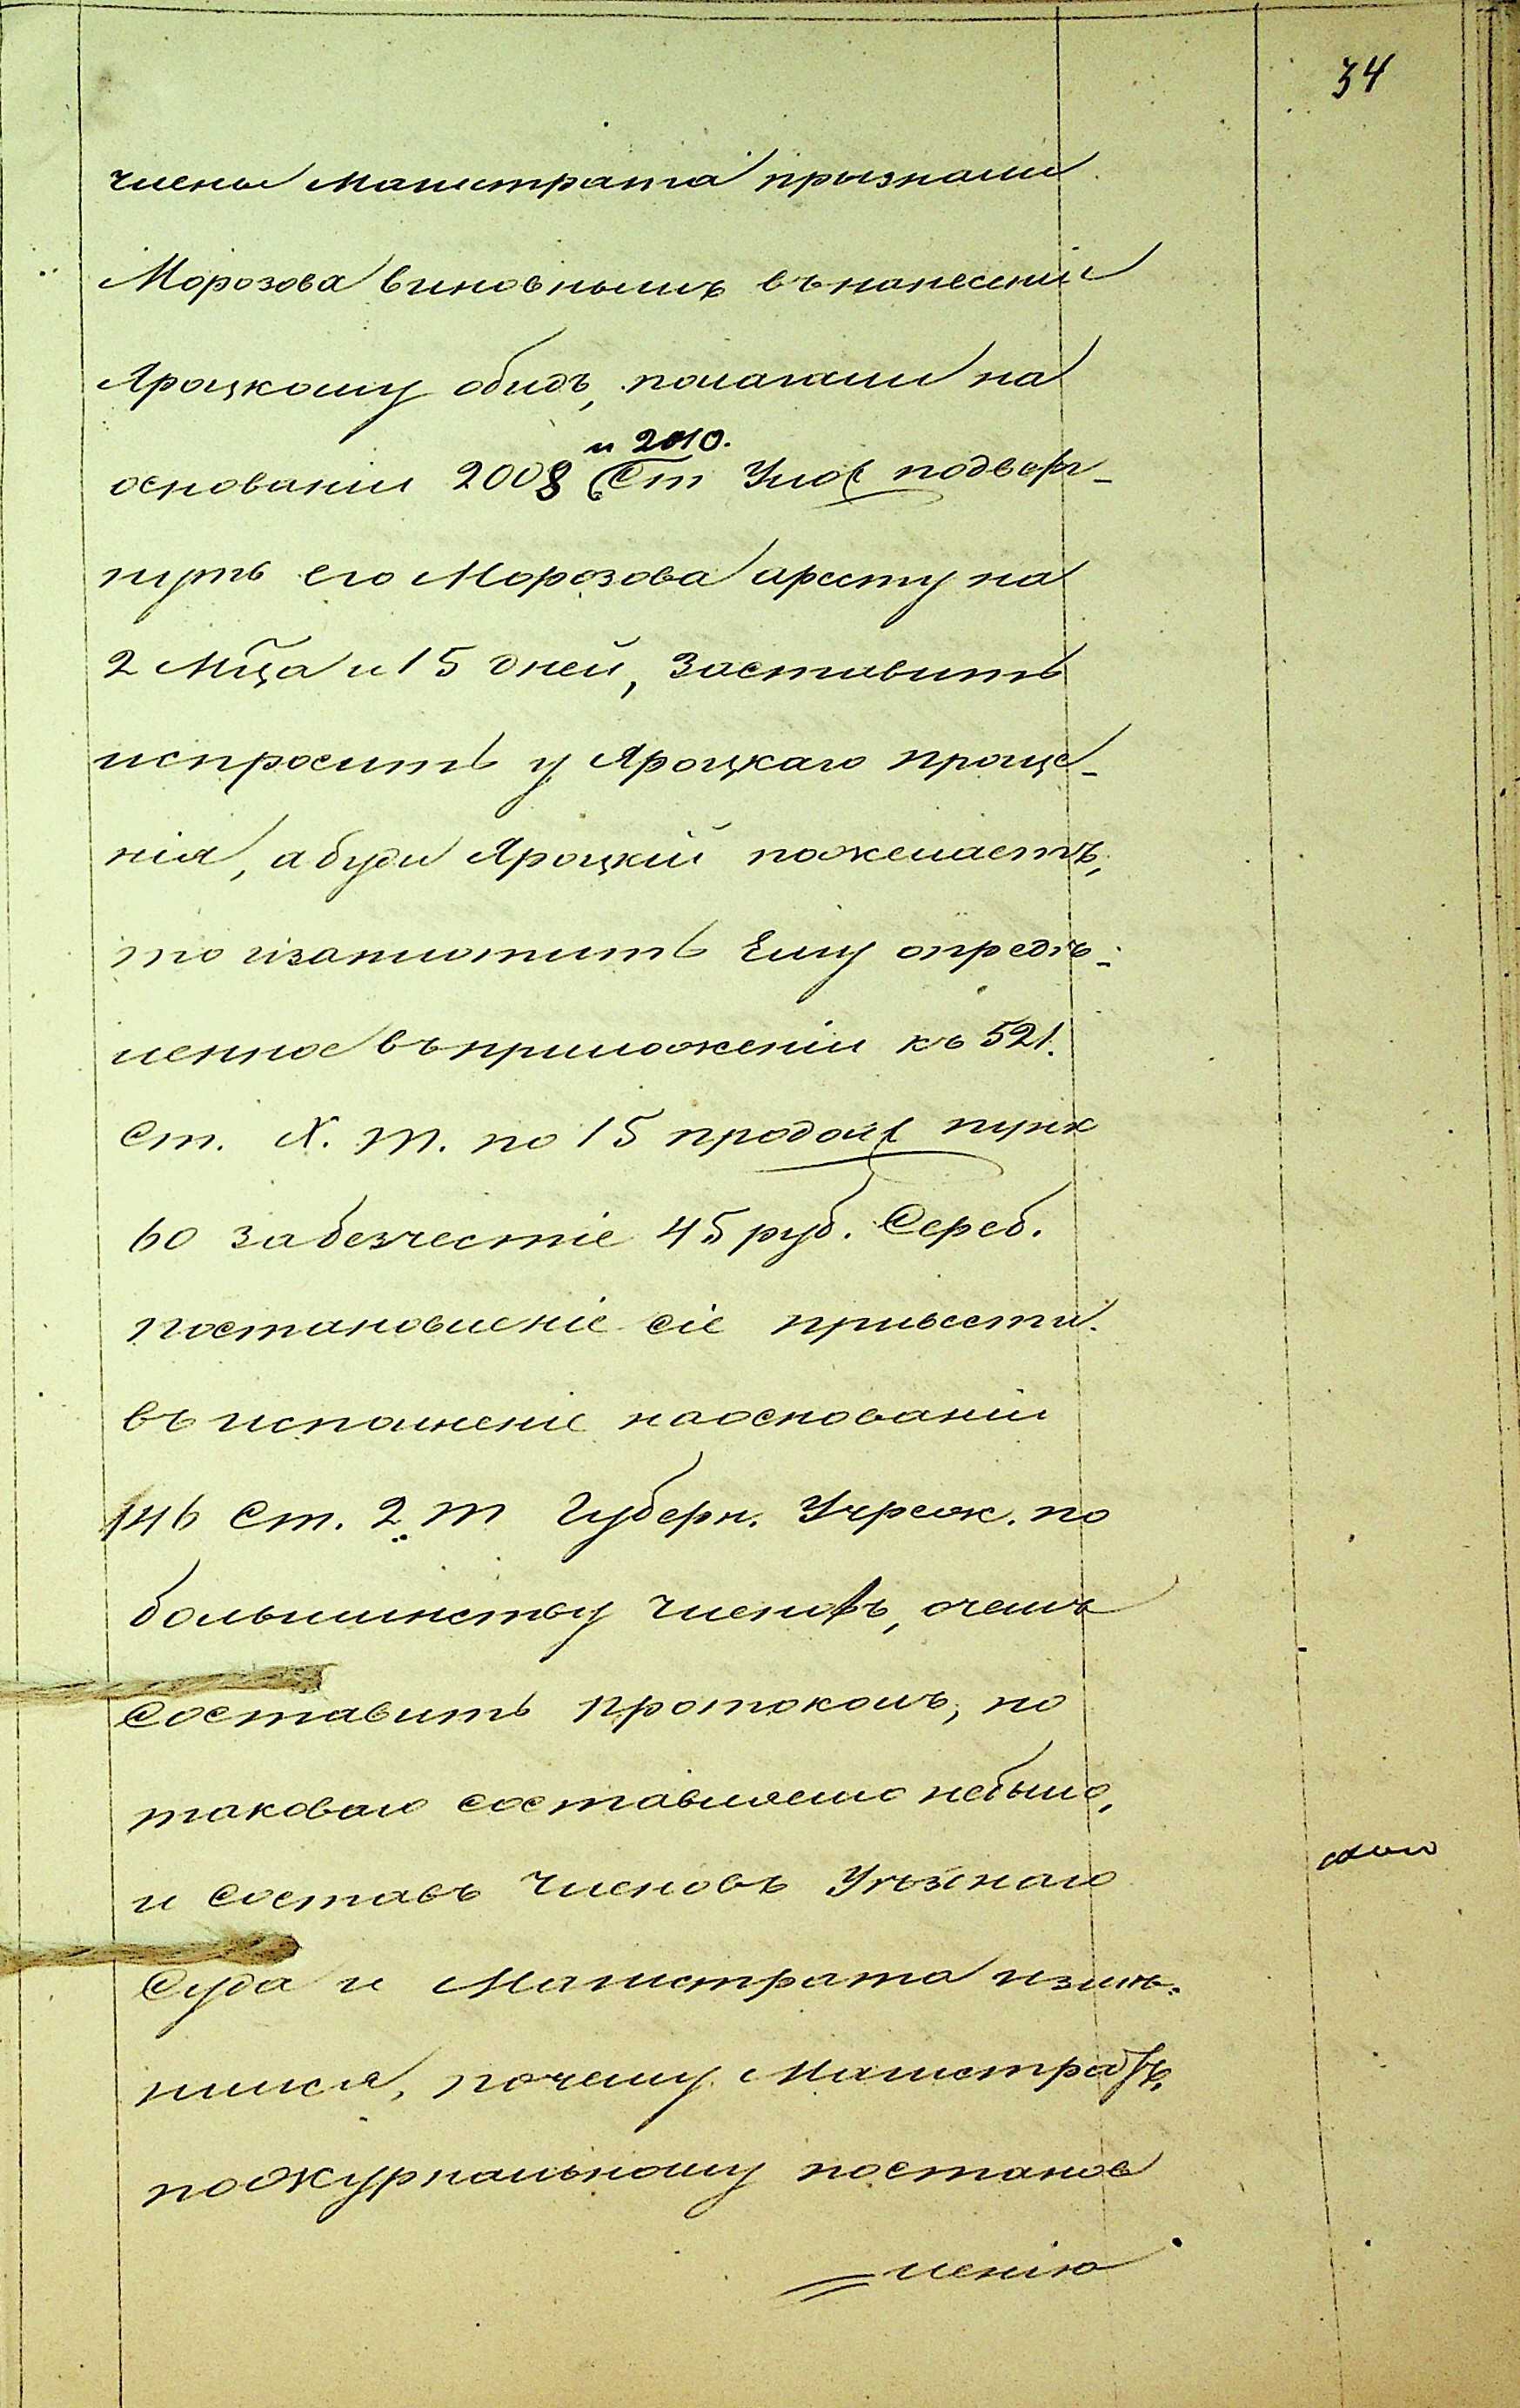 34
члены Магистрата признали
Морозова виновнымъ въ нанесеніи
Яроцкому обидъ, полагали на
и 2010.
основаніи 2008 Ст Улож подверг-
нуть его Морозова аресту на
2 Мца и 15 дней, заставить
испросить у Яроцкаго проще-
нія, а буде Яроцкій пожелаетъ,
то изаплатить Ему опредѣ-
ленное въ приложеніи къ 521.
Ст. X. т. по 15 продолж пунк
60 за безчестіе 45 руб. Сереб.
постановленіе сіе привести
въ исполненіе на основаніи
146 Ст. 2 т Губерн. Учреж. по
большинству членовъ, очемъ
составить протоколъ, но
таковаго составляемо небыло,
и составъ Членовъ Уѣзднаго
Суда и Магистрата измѣ-
нился, почему Магистратъ,
по Журнальному постанов
ленію